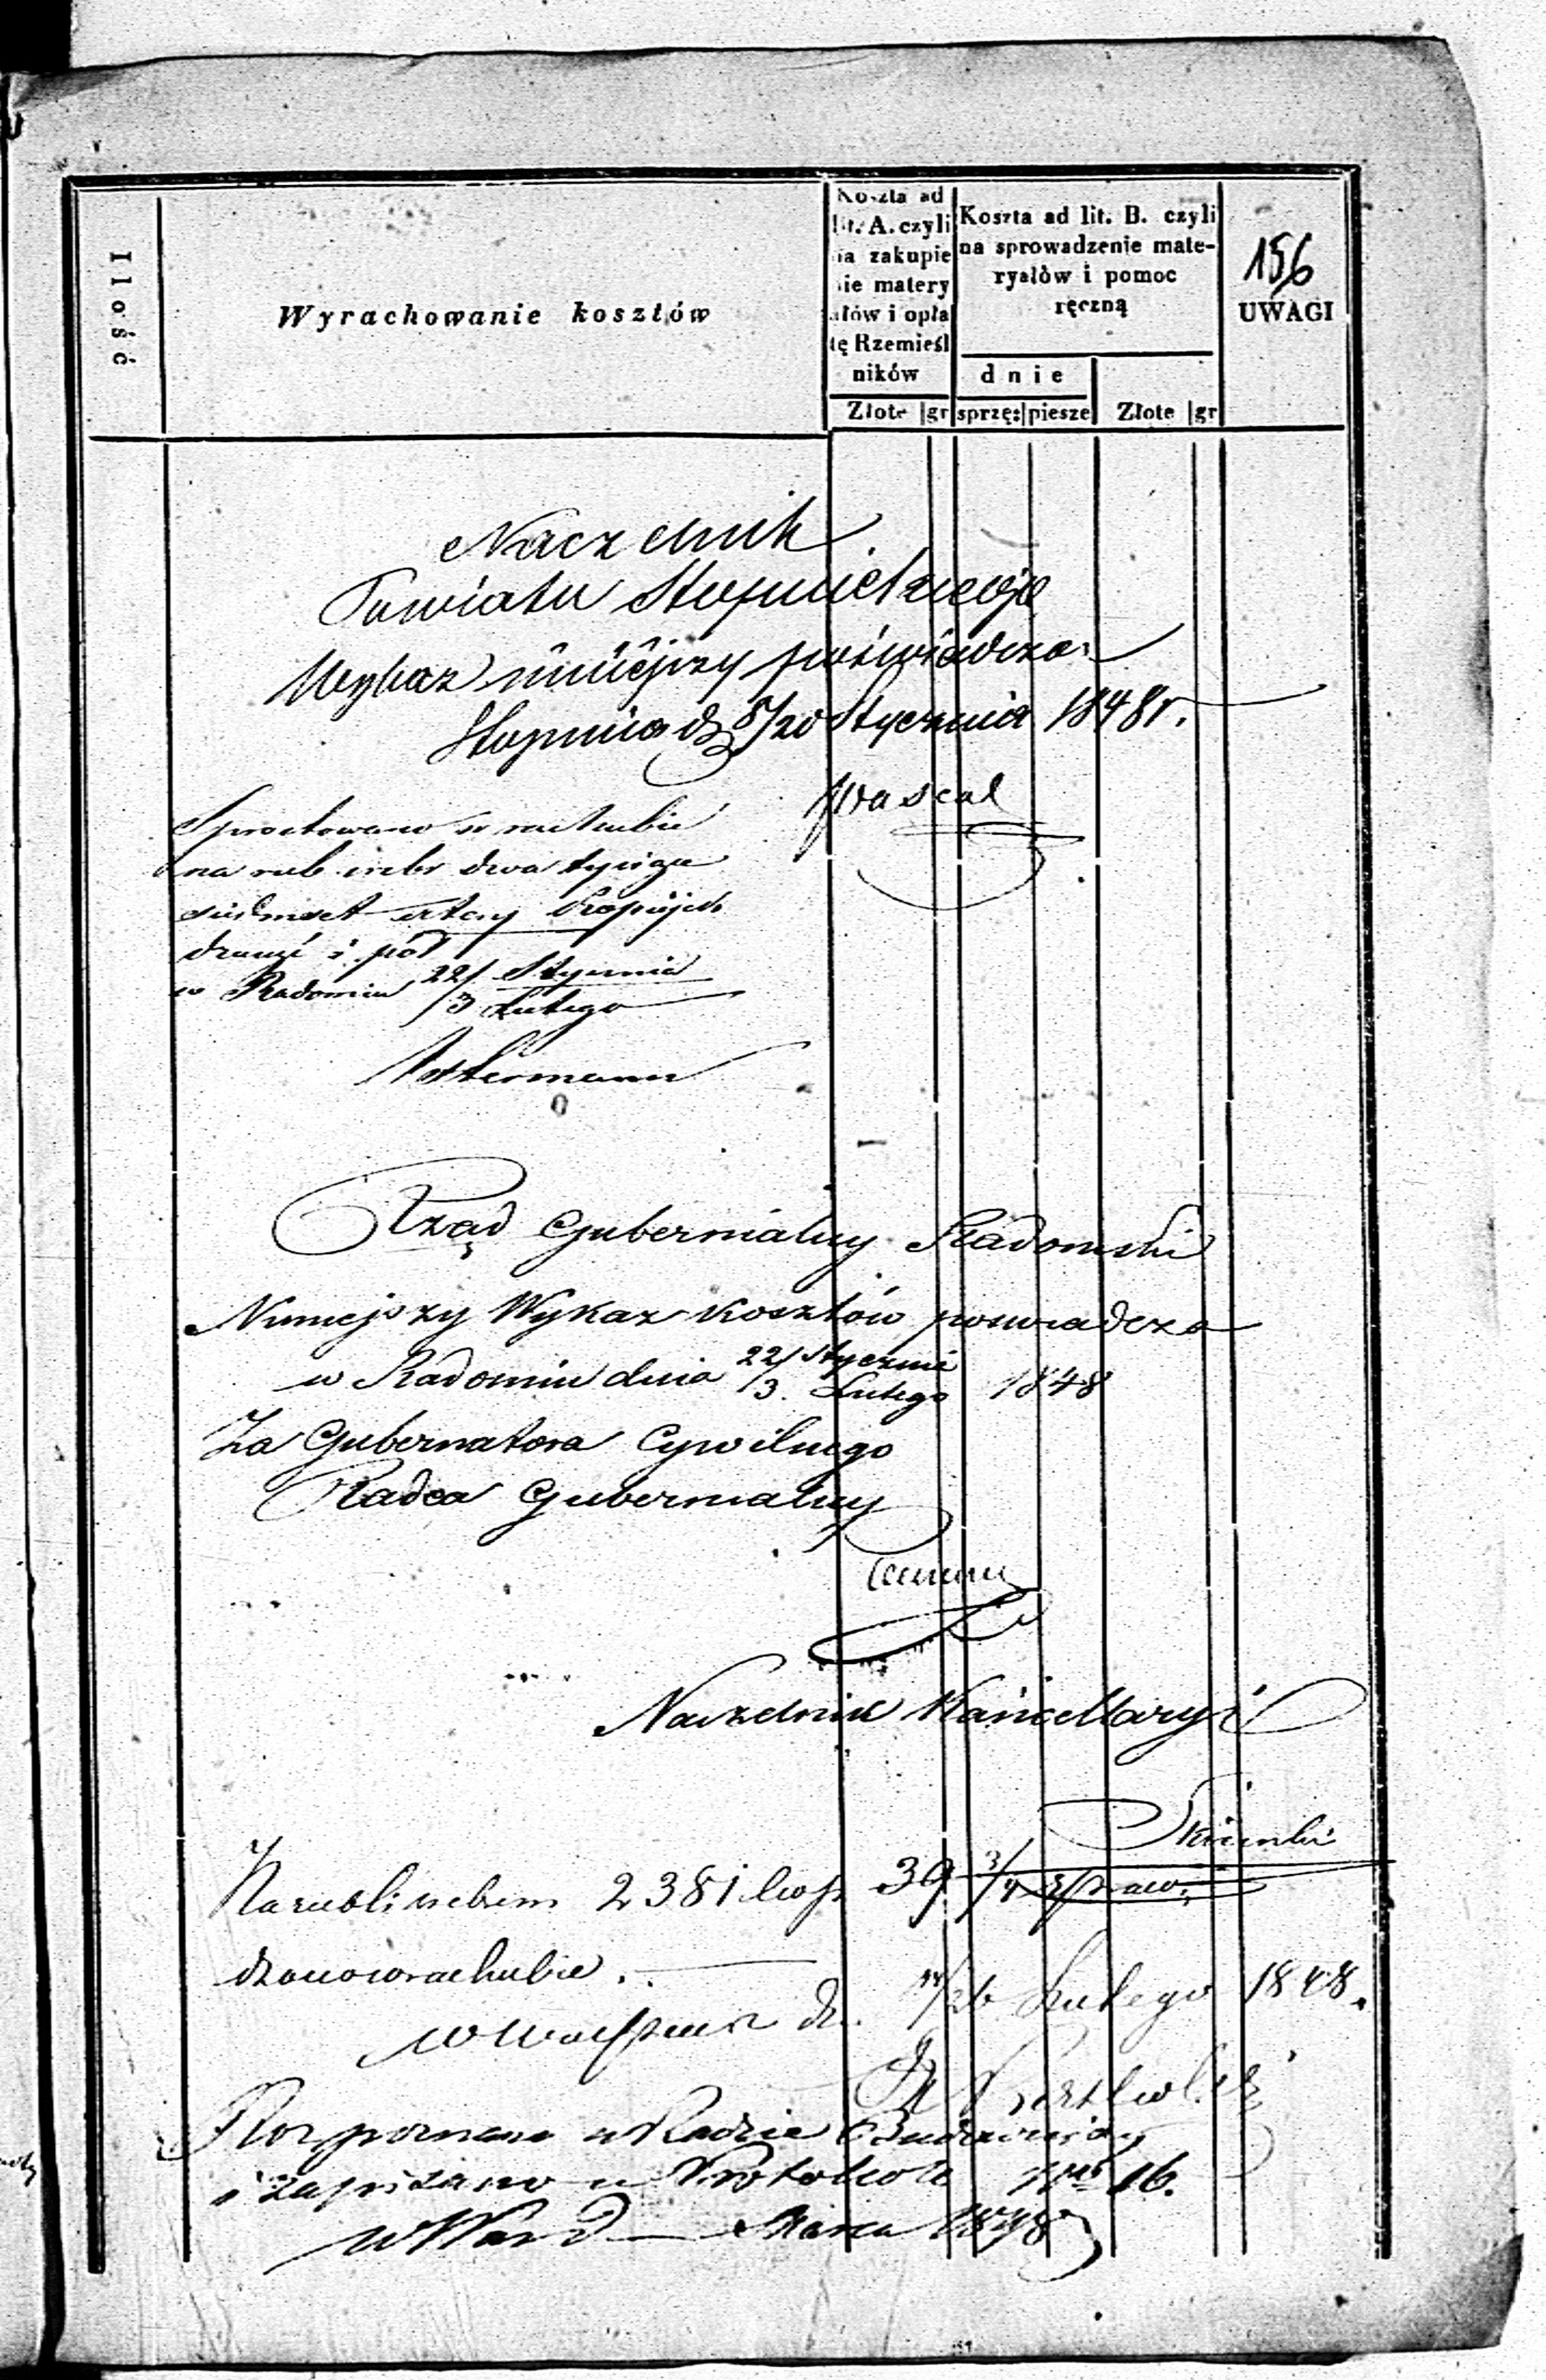 156
Ilość
Wyrachowanie kosztów
Koszta ad
lit. A. czyli
na zakupie
nie matery
ałów i opła
tę Rzemieśl
ników
Złote gr
Koszta ad lit. B. czyli
na sprowadzenie mate-
ryałów i pomoc
ręczną
dnie
sprzę: piesze Złote gr
UWAGI
Naczelnik
Powiatu Stopnickiego
Wykaz niniejszy poświadcza
Stopnica d. 8/20 Stycznia 1848 r.
Sprostowano w rachubie
na rub. srebr dwa tysiące
siedmset cztery kopiejek
i pół
w Radomiu 22/3 Stycznia Lutego
Rząd Gubernialny Radomski
Niniejszy Wykaz kosztów poswiadcza
w Radomiu dnia 22/3. Stycznia Lutego 1848
Za Gubernatora Cywilnego
Radca Gubernialny
Naczelnik Kancellaryi
Na rubli srebrem 2381 kop 39 3/4 spraw-
dzono w rachubie.
w Warszawie d. 14/26 Lutego 1848.
Rozpoznano w Radzie Budowniczej
i zapisano w Protokole 16.
w Warsz. d — Marca 1848